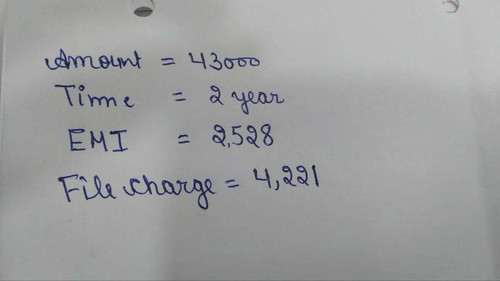 Amount = 43000
Time = 2 year
EMI = 2,528
File charge = 4,221